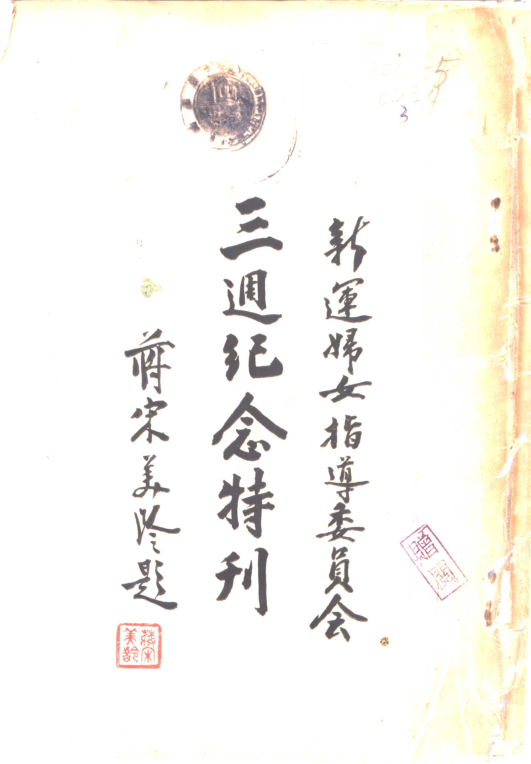 新運婦女指導委員会
三週紀念特刊
蔣宋美齡題
蔣宋美齡
5
3